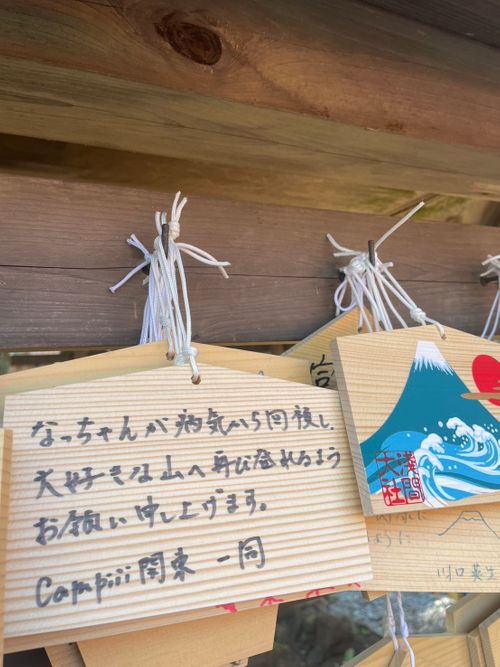 なっちゃんが病気から回復し、
大好きな山へ再び登れるよう
お願い申し上げます。
Campiii関東 一同
浅間
大社
ように